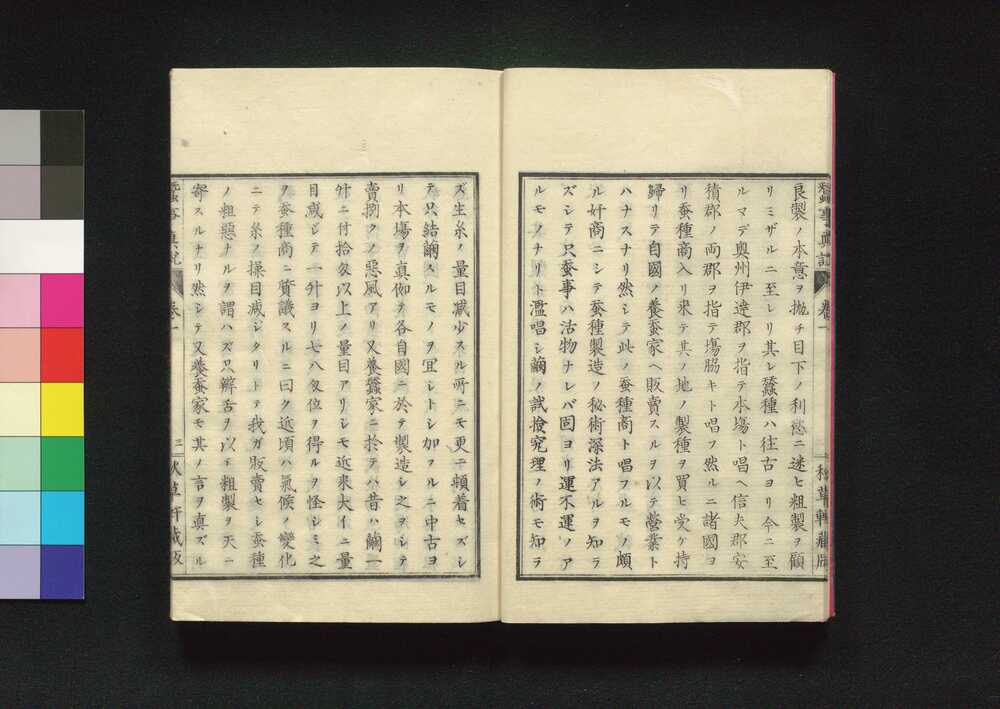 蠶事眞説 卷一 秋草軒藏版
良製ノ本意ヲ抛チ目下ノ利慾ニ迷ヒ粗製ヲ顧
リミザルニ至レリ其レ蠶種ハ徃古ヨリ今ニ至
ルマデ奥州伊達郡ヲ指テ本塲ト唱ヘ信夫郡安
積郡ノ両郡ヲ指テ塲脇キト唱フ然ルニ諸國ヨ
リ蚕種商入リ来テ其ノ地ノ製種ヲ買ヒ受ケ持
歸リテ自國ノ養蚕家ヘ販賣スルヲ以テ營業ト
ハナスナリ然シテ此ノ蚕種商ト唱フルモノ頗
ル奸商ニシテ蚕種製造ノ秘術深法アルヲ知ラ
ズシテ只蚕事ハ活物ナレバ固ヨリ運不運ノア
ルモノナリト濫唱シ繭ノ試撿究理ノ術モ知ラ
ズ生糸ノ量目减少スル所ニモ更ニ頓着セズシ
テ只結繭スルモノヲ冝シトシ加フルニ中古ヨ
リ本塲ヲ真似テ各自國ニ於テ製造シ之ヲシテ
賣捌クノ惡風アリ又養蠶家ニ於テハ昔ハ繭一
升ニ付拾匁以上ノ量目アリシモ近来大イニ量
目减シテ一升ヨリ七八匁位ヲ得ルヲ怪シミ之
ヲ蚕種商ニ質議スルニ曰ク近頃ハ氣候ノ變化
ニテ糸ノ操目减シタリトテ我ガ販賣セシ蚕種
ノ粗惡ナルヲ謂ハズ只辨舌ヲ以テ粗製ヲ天ニ
寄スルナリ然シテ又養蚕家モ其ノ言ヲ真ズル
蠶事眞説 卷一 三 秋草軒藏版